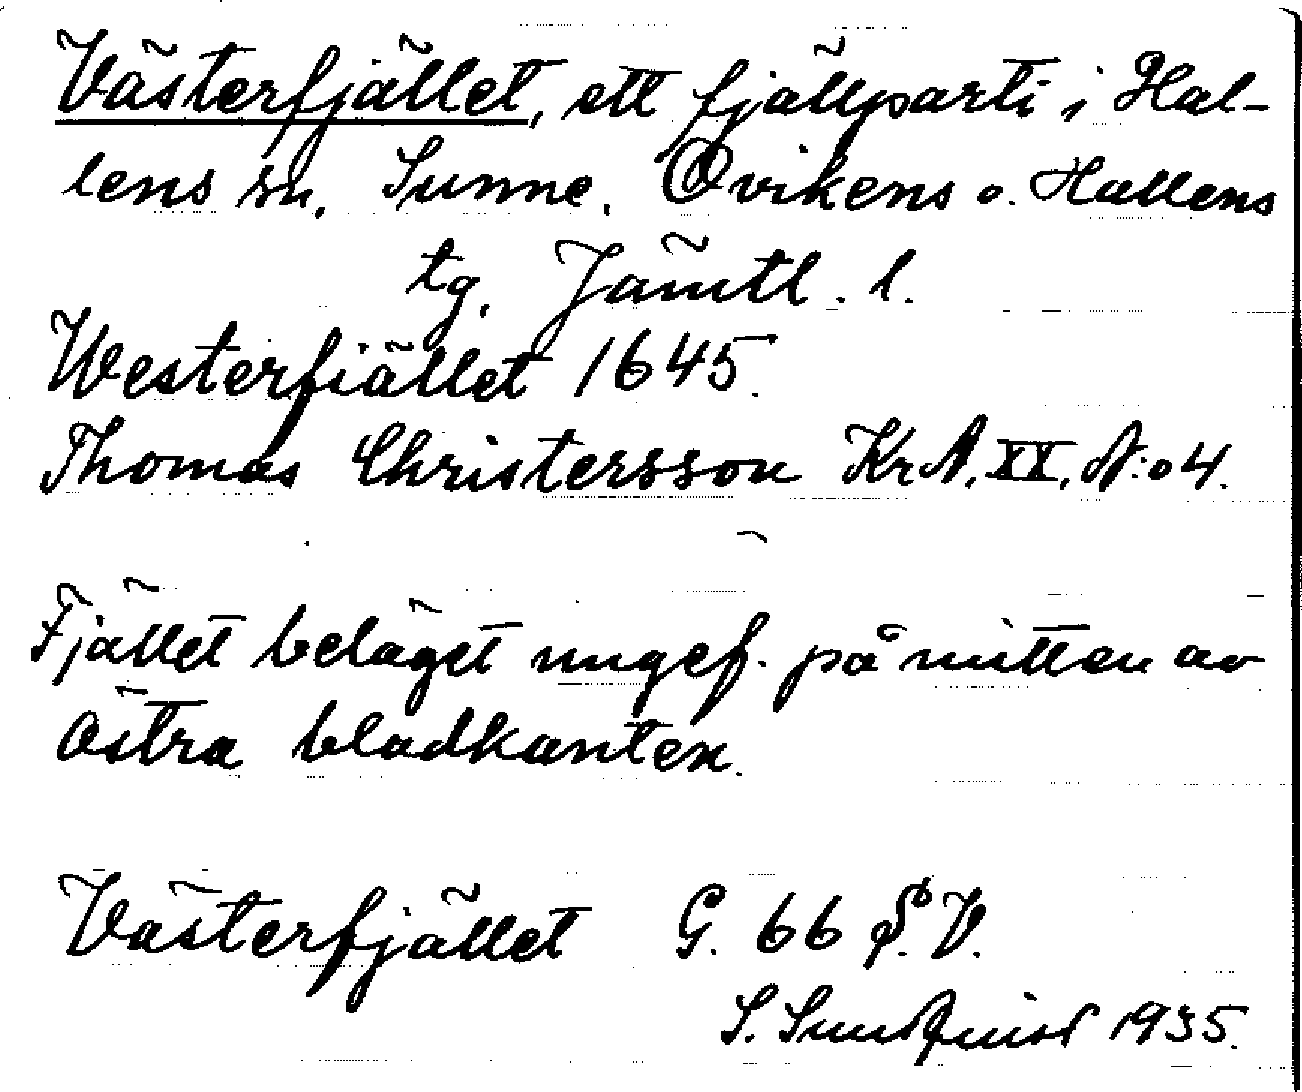 Västerfjället, ett fjällparti i Hal-
lens sn, Sunne, Ovikens o. Hallens
tg, Jämtl. l.
Westerfiället 1645.
Thomas Christersson Kr A. XX. N:o 4.
Fjället beläget ungef. på mitten av
östra bladkanten.
Västerfjället G. 66 S. V.
S. Sundquist 1935.